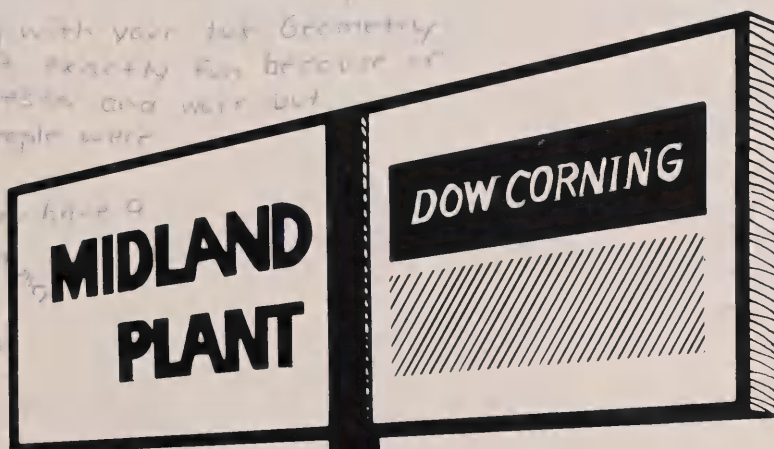 with your Geometry
exactly fun because of
and were but
people were
have a
MIDLAND
PLANT
DOW CORNING